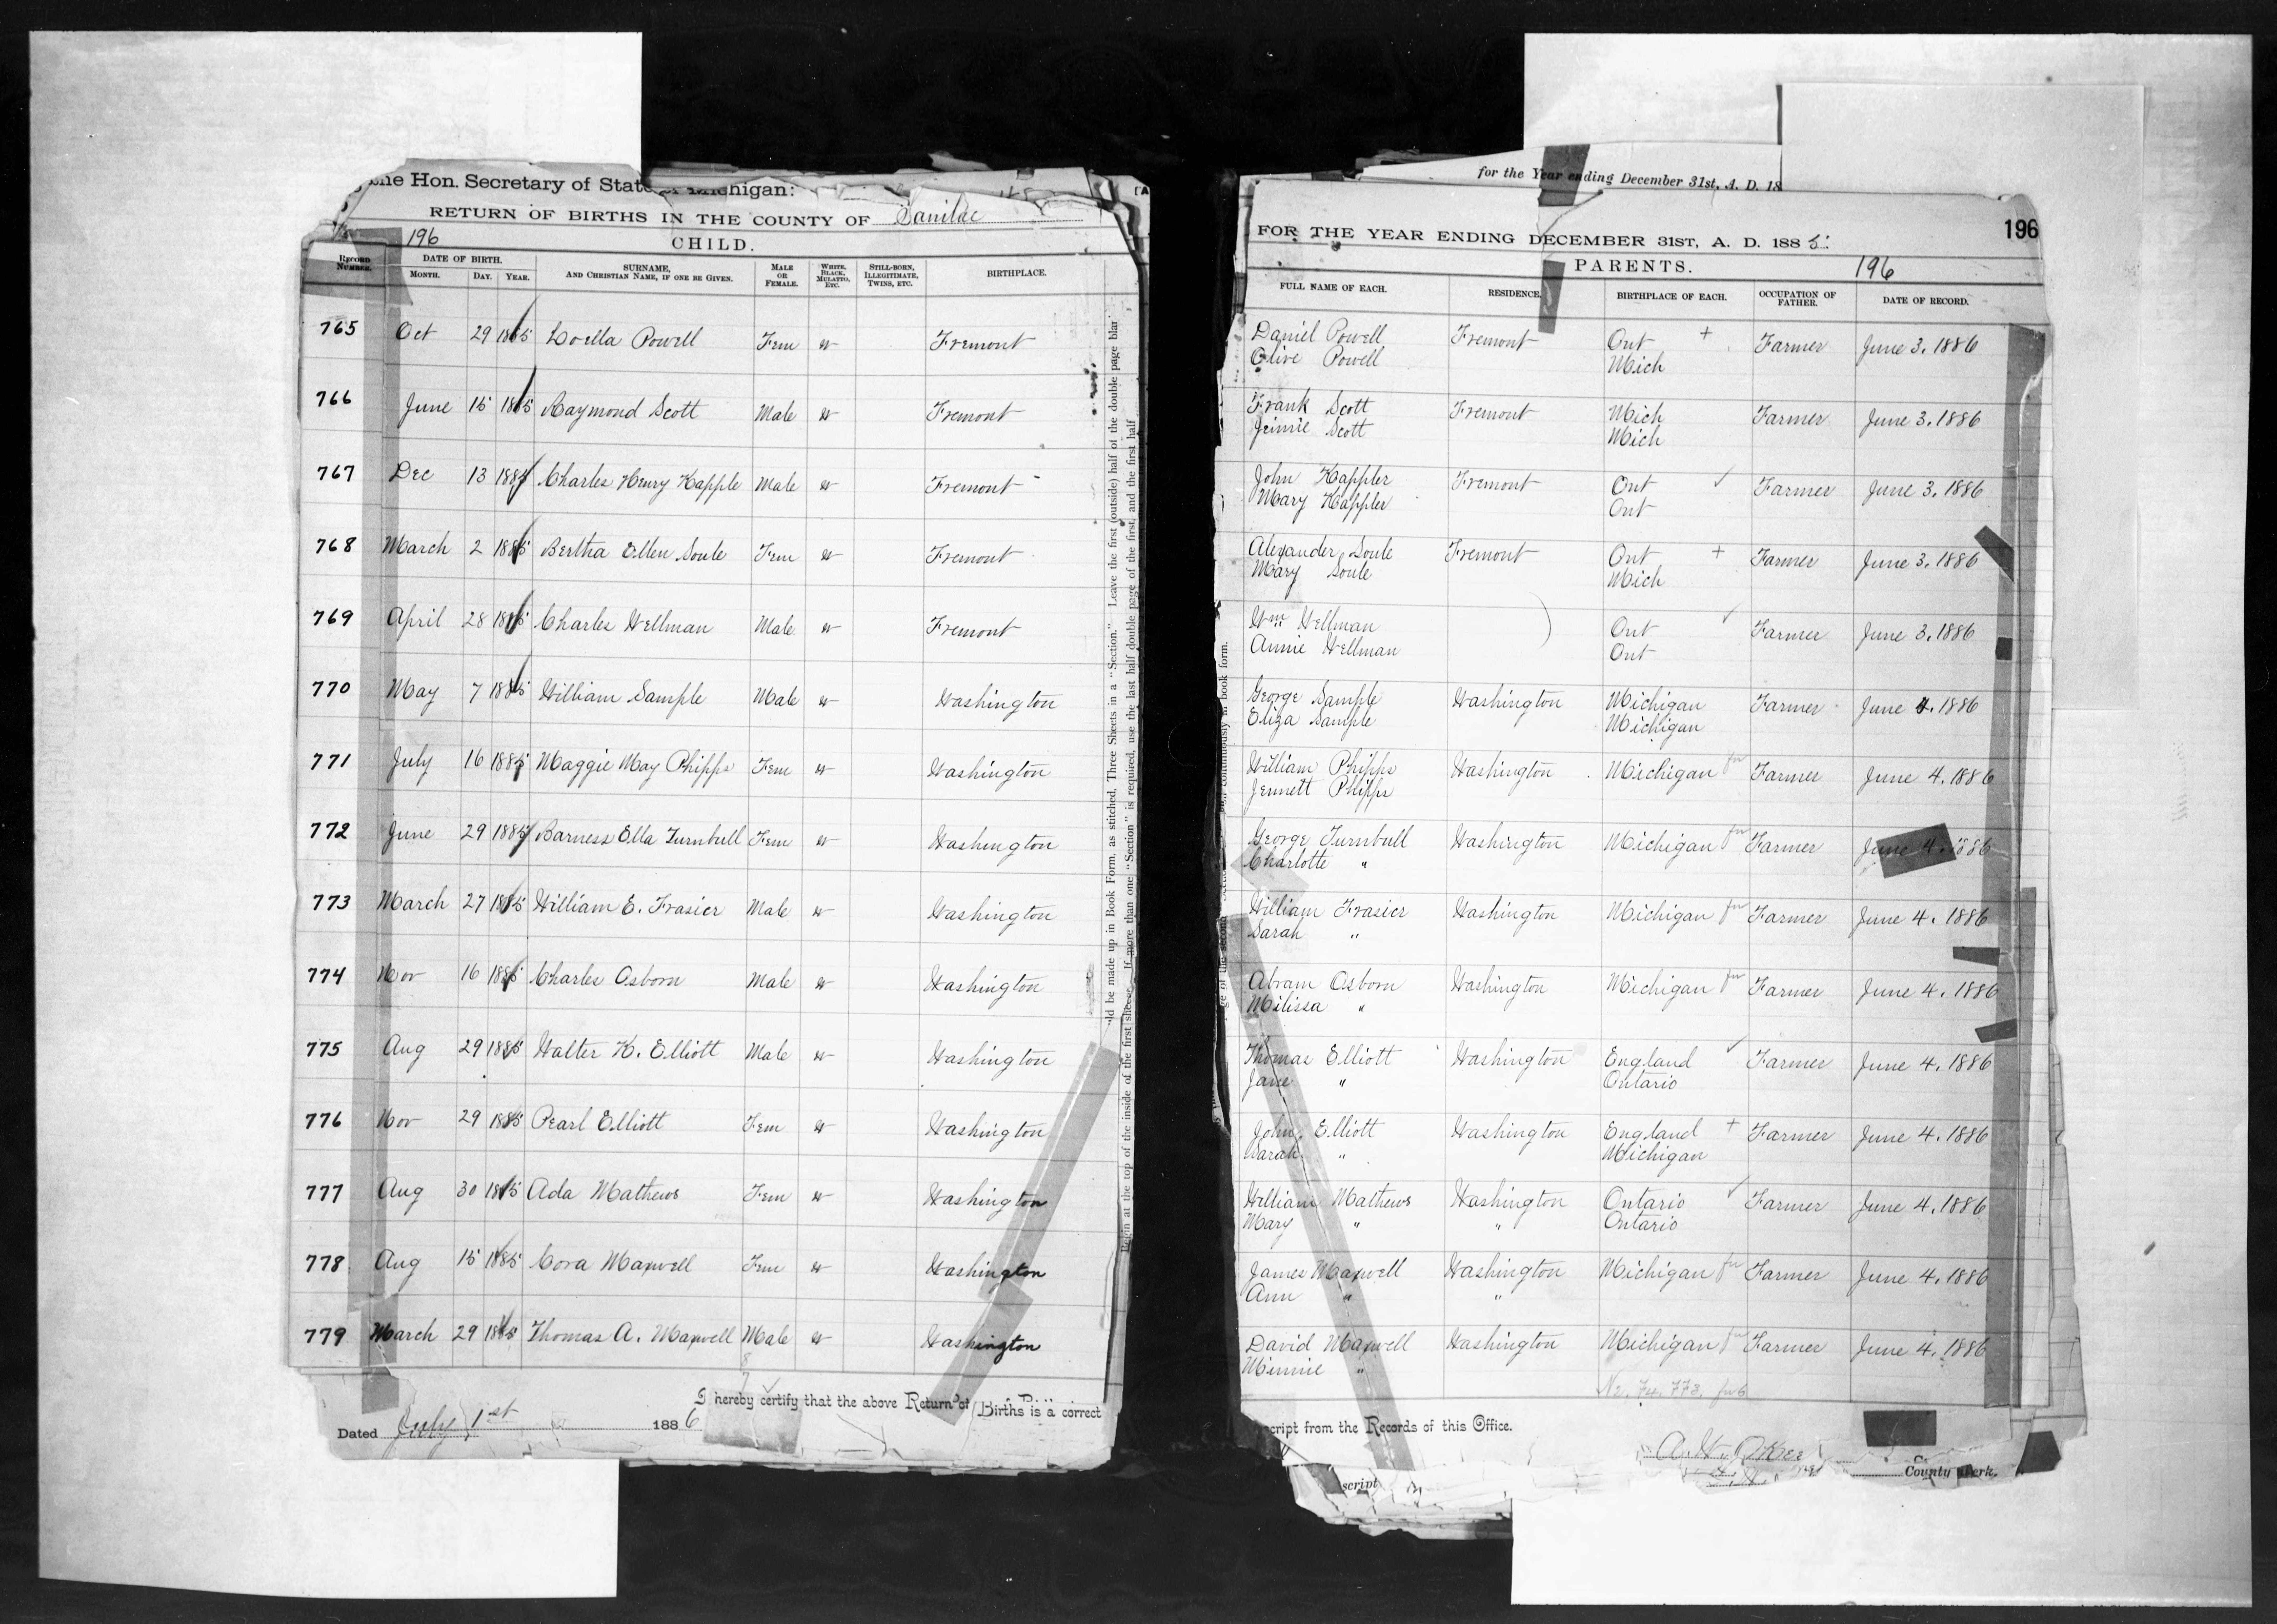 the Hon. Secretary of State of Michigan:
RETURN OF BIRTHS IN THE COUNTY OF Sanilac
196
CHILD.
RECORD NUMBER. DATE OF BIRTH. MONTH. DAY. YEAR. SURNAME, AND CHRISTIAN NAME, IF ONE BE GIVEN. MALE OR FEMALE. WHITE, BLACK, MULATTO, ETC. STILL-BORN, ILLEGITIMATE, TWINS, ETC. BIRTHPLACE.
765 Oct 29 1885 Loella Powell Fem w Fremont
766 June 15 1885 Raymond Scott Male w Fremont
767 Dec 13 1885 Charles Henry Kapple Male w Fremont
768 March 2 1885 Bertha Ellen Soule Fem w Fremont
769 April 28 1885 Charles Wellman Male w Fremont
770 May 7 1885 William Sample Male w Washington
771 July 16 1885 Maggie May Phipps Fem w Washington
772 June 29 1885 Barness Ella Turnbull Fem w Washington
773 March 27 1885 William E. Frasier Male w Washington
774 Nov 16 1885 Charles Osborn Male w Washington
775 Aug 29 1885 Walter H. Elliott Male w Washington
776 Nov 29 1885 Pearl Elliott Fem w Washington
777 Aug 30 1885 Ada Mathews Fem w Washington
778 Aug 15 1885 Cora Maxwell Fem w Washington
779 March 29 1885 Thomas A. Maxwell Male w Washington
I hereby certify that the above Return of Births is a correct
Dated July 1st 1886
ld be made up in Book Form, as stitched, Three Sheets in a "Section." Leave the first (outside) half of the double page blan
Begin at the top of the inside of the first sheet. If more than one "Section" is required, use the last half double page of the first, and the first half
for the Year ending December 31st, A. D. 18
FOR THE YEAR ENDING DECEMBER 31ST, A. D. 1885.
196
PARENTS.
196
FULL NAME OF EACH. RESIDENCE. BIRTHPLACE OF EACH. OCCUPATION OF FATHER. DATE OF RECORD.
Daniel Powell Fremont Ont + Farmer June 3. 1886
Olive Powell Mich
Frank Scott Fremont Mich Farmer June 3. 1886
Jennie Scott Mich
John Kappler Fremont Ont ✓ Farmer June 3. 1886
Mary Kappler Ont
Alexander Soule Fremont Ont + Farmer June 3. 1886
Mary Soule Mich
Wm Wellman Ont ✓ Farmer June 3. 1886
Annie Wellman Ont
George Sample Washington Michigan Farmer June 4. 1886
Eliza Sample Michigan
William Phipps Washington Michigan Farmer June 4. 1886
Jennett Phipps
George Turnbull Washington Michigan Farmer June 4. 1886
Charlotte "
William Frasier Washington Michigan Farmer June 4. 1886
Sarah "
Abram Osborn Washington Michigan Farmer June 4. 1886
Milissa "
Thomas Elliott Washington England ✓ Farmer June 4. 1886
Jane " Ontario
John Elliott Washington England + Farmer June 4. 1886
Sarah " Michigan
William Mathews Washington Ontario ✓ Farmer June 4. 1886
Mary " " Ontario
James Maxwell Washington Michigan Farmer June 4. 1886
Ann " "
David Maxwell Washington Michigan Farmer June 4. 1886
Minnie "
script from the Records of this Office.
County Clerk.
script